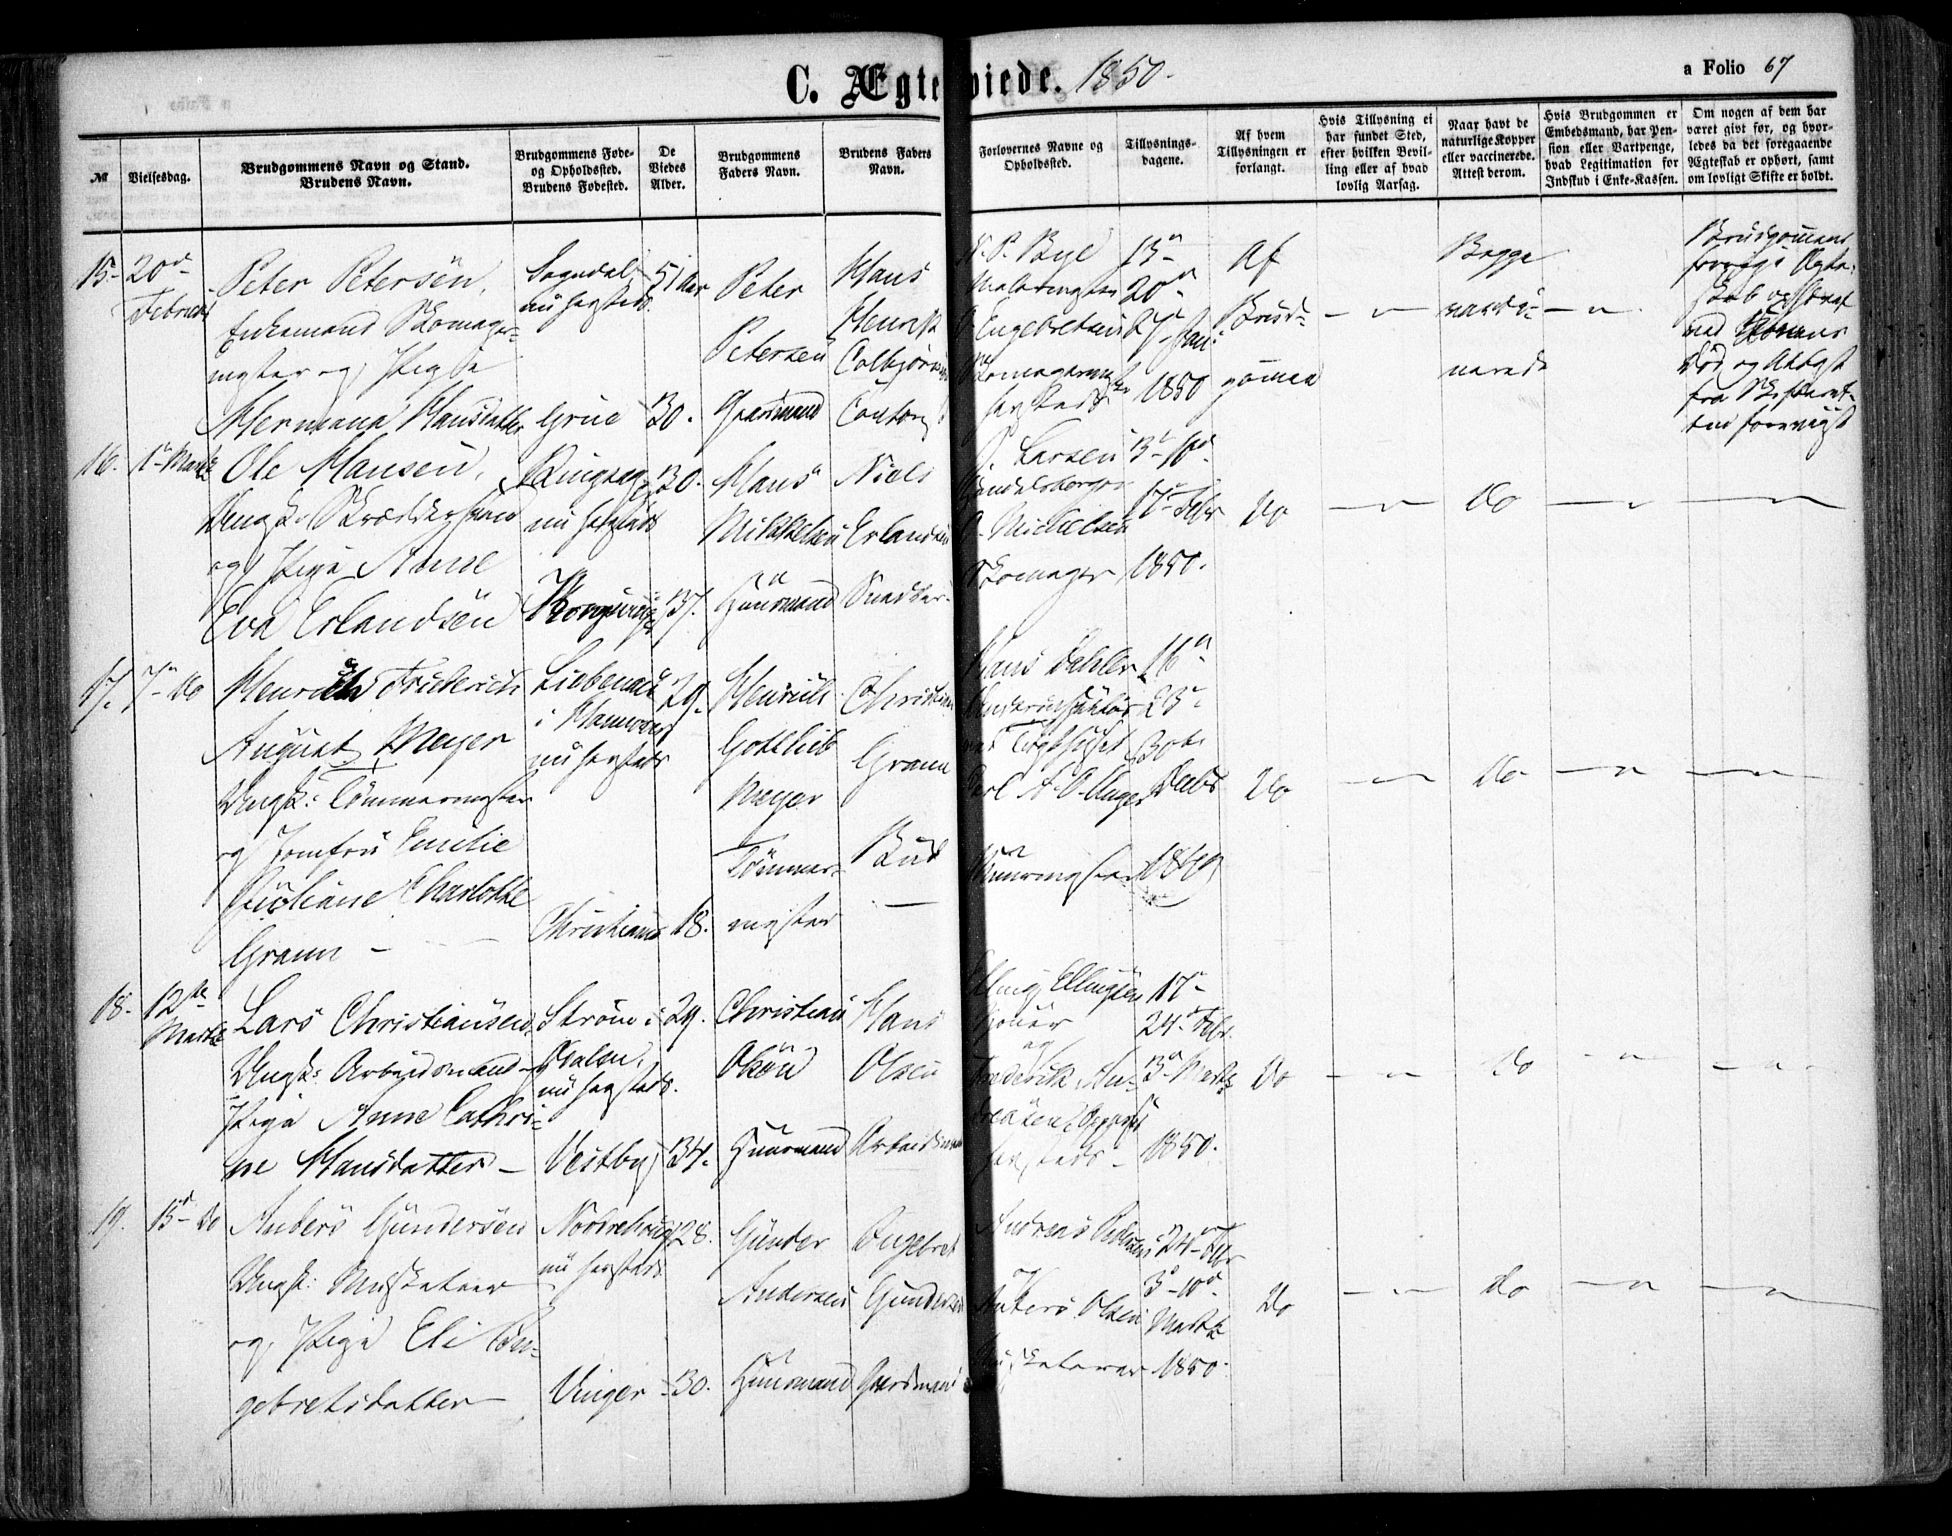 C. Ægteviede. 1850.
a Folio 67
№
Vielsesdag.
Brudgommens Navn og Stand.
Brudens Navn.
Brudgommens Føde-
og Opholdssted.
Brudens Fødested.
De
Viedes
Alder.
Brudgommens
Faders Navn.
Brudens Faders
Navn.
Forlovernes Navne og
Opholdssted.
Tillysnings-
dagene.
Af hvem
Tillysningen er
forlangt.
Hvis Tillysning ei
har fundet Sted,
efter hvilken Bevil-
ling eller af hvad
lovlig Aarsag.
Naar havt de
naturlige Kopper
eller vaccinerede.
Attest derom.
Hvis Brudgommen er
Embedsmand, har Pen-
sion eller Vartpenge,
hvad Legitimation for
Indskud i Enke-Kassen.
Om nogen af dem har
været givt før, og hvor-
ledes da det foregaaende
Ægteskab er ophørt, samt
om lovligt Skifte er holdt.
15-
20de
Februar
Peter Petersen,
Enkemand Skomager-
mester og Pige
Hermana Hansdatter
Sogndal,
nu hersteds
Grue
51 Aar
30.
Peter
Petersen
Gaardmand
Hans
Henrik
Colbjørnsen
N. P. Bye
Malermester
Engebretsen
Skomagermester
hersteds
13-
20-
27- Jan:
1850
Af
Brud-
gommen
Begge
vacci-
nerede
Brudgommens
forrige Ægte-
skab ophævet
ved Konens
Død og Attest
fra Skifteret-
ten foreviist
16.
1ste Marts
Ole Hansen,
Ungk: Skræddersvend
og Pige Anne
Eva Erlandsen
Ringsager
nu hersteds
Kongsvinger
30.
37.
Hans
Mikkelsen
Huusmand
Niels
Erlandsen
Snedker
Larsen
Michelsen
Skomager
3- 10-
17- Febr
1850.
Do
Do
17.
7- Do
Henrich Friederich
August Meyer
Ungk: Tømmermester
og Jomfru Emilie
Juliane Charlotte
Gramm -
Liebenau
i Hannover
nu hersteds
Christiania
29.
18.
Henrich
Gottlieb
Meyer
Tømmer-
mester
Christian
Gramm
Bud
Hans Dehler
ved Tugthuset
Carl A. O. Unger
Muurmester
16-
23-
30te
Decbr
1849
Do
Do
18-
12te
Marts
Lars Christiansen
Ungk: Arbeidsmand
Pige Anne Cathri-
ne Hansdatter -
Strøm i
Odalen,
nu hersteds.
Vestby
29.
34.
Christian
Olsen
Huusmand
Hans
Olsen
Arbeidsmand
Elling Ellingsen
og
Frederik An-
hersteds -
17-
24- Febr.
3- Marts
1850.
Do
Do
19.
15- Do
Anders Gundersen
Ungk: Musketeer
og Pige Eli En-
gebretsdatter
Norderhoug
nu hersteds
Vinger
28.
30.
Gunder
Andersen
Huusmand
Engebret
Gundersen
Gaardmand
Andreas Pedersen
Anders Olsen
Musketerer
24- Febr
3- 10-
Marts
1850.
Do
Do